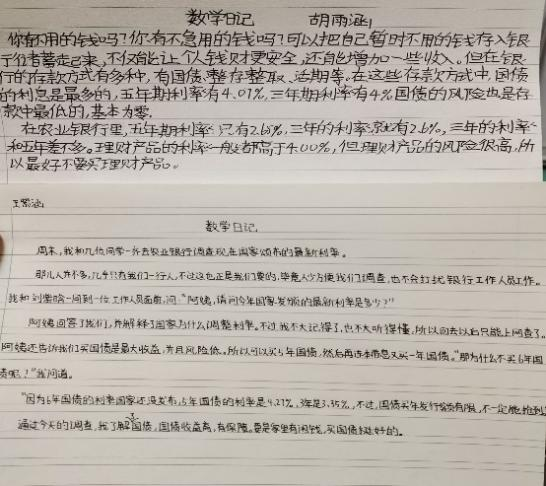 数学日记 胡雨涵
你有不用的钱吗?你有不急用的钱吗?可以把自己暂时不用的钱存入银
行储蓄起来,不仅能让个人钱财更安全,还能增加一些收入。但在银
行的存款方式有多种,有国债、整存整取、活期等。在这些存款方式中,国债
的利息是最多的,五年期利率有4.01%,三年期利率有4%国债的风险也是存
款中最低的,基本为零.
在农业银行里,五年期利率只有2.65%,三年的利率就有2.6%,三年的利率
和五年差不多。理财产品的利率一般都高于4.00%,但理财产品的风险很高,所
以最好不要买理财产品。
数学日记
周末,我和几位同学一齐去农业银行调查现在国家颁布的最新利率。
那儿人并不多,几乎只有我们一行人,不过这也正是我们要的,毕竟人少方便我们调查,也不会打扰银行工作人员工作。
我和刘一同到一位工作人员面前,问:“阿姨,请问今年国家发颁的最新利率是多少?”
阿姨回答了我们,并解释了国家为什么调整利率。不过我不太记得了,也不大听得懂,所以回去以后只能上网查了。
阿姨还告诉我们买国债是最大收益,并且风险低。所以可以买5年国债,然后再连本带息又买一年国债。“那为什么不买6年国
债呢?”我问道。
“因为6年国债的利率国家还没发布,5年国债的利率是4.27%,是3.35%,不过,国债买年发行额有限,不一定能抢到
通过今天的调查,我了解了国债,国债收益高,有保障。要是家里有闲钱,买国债挺好的。